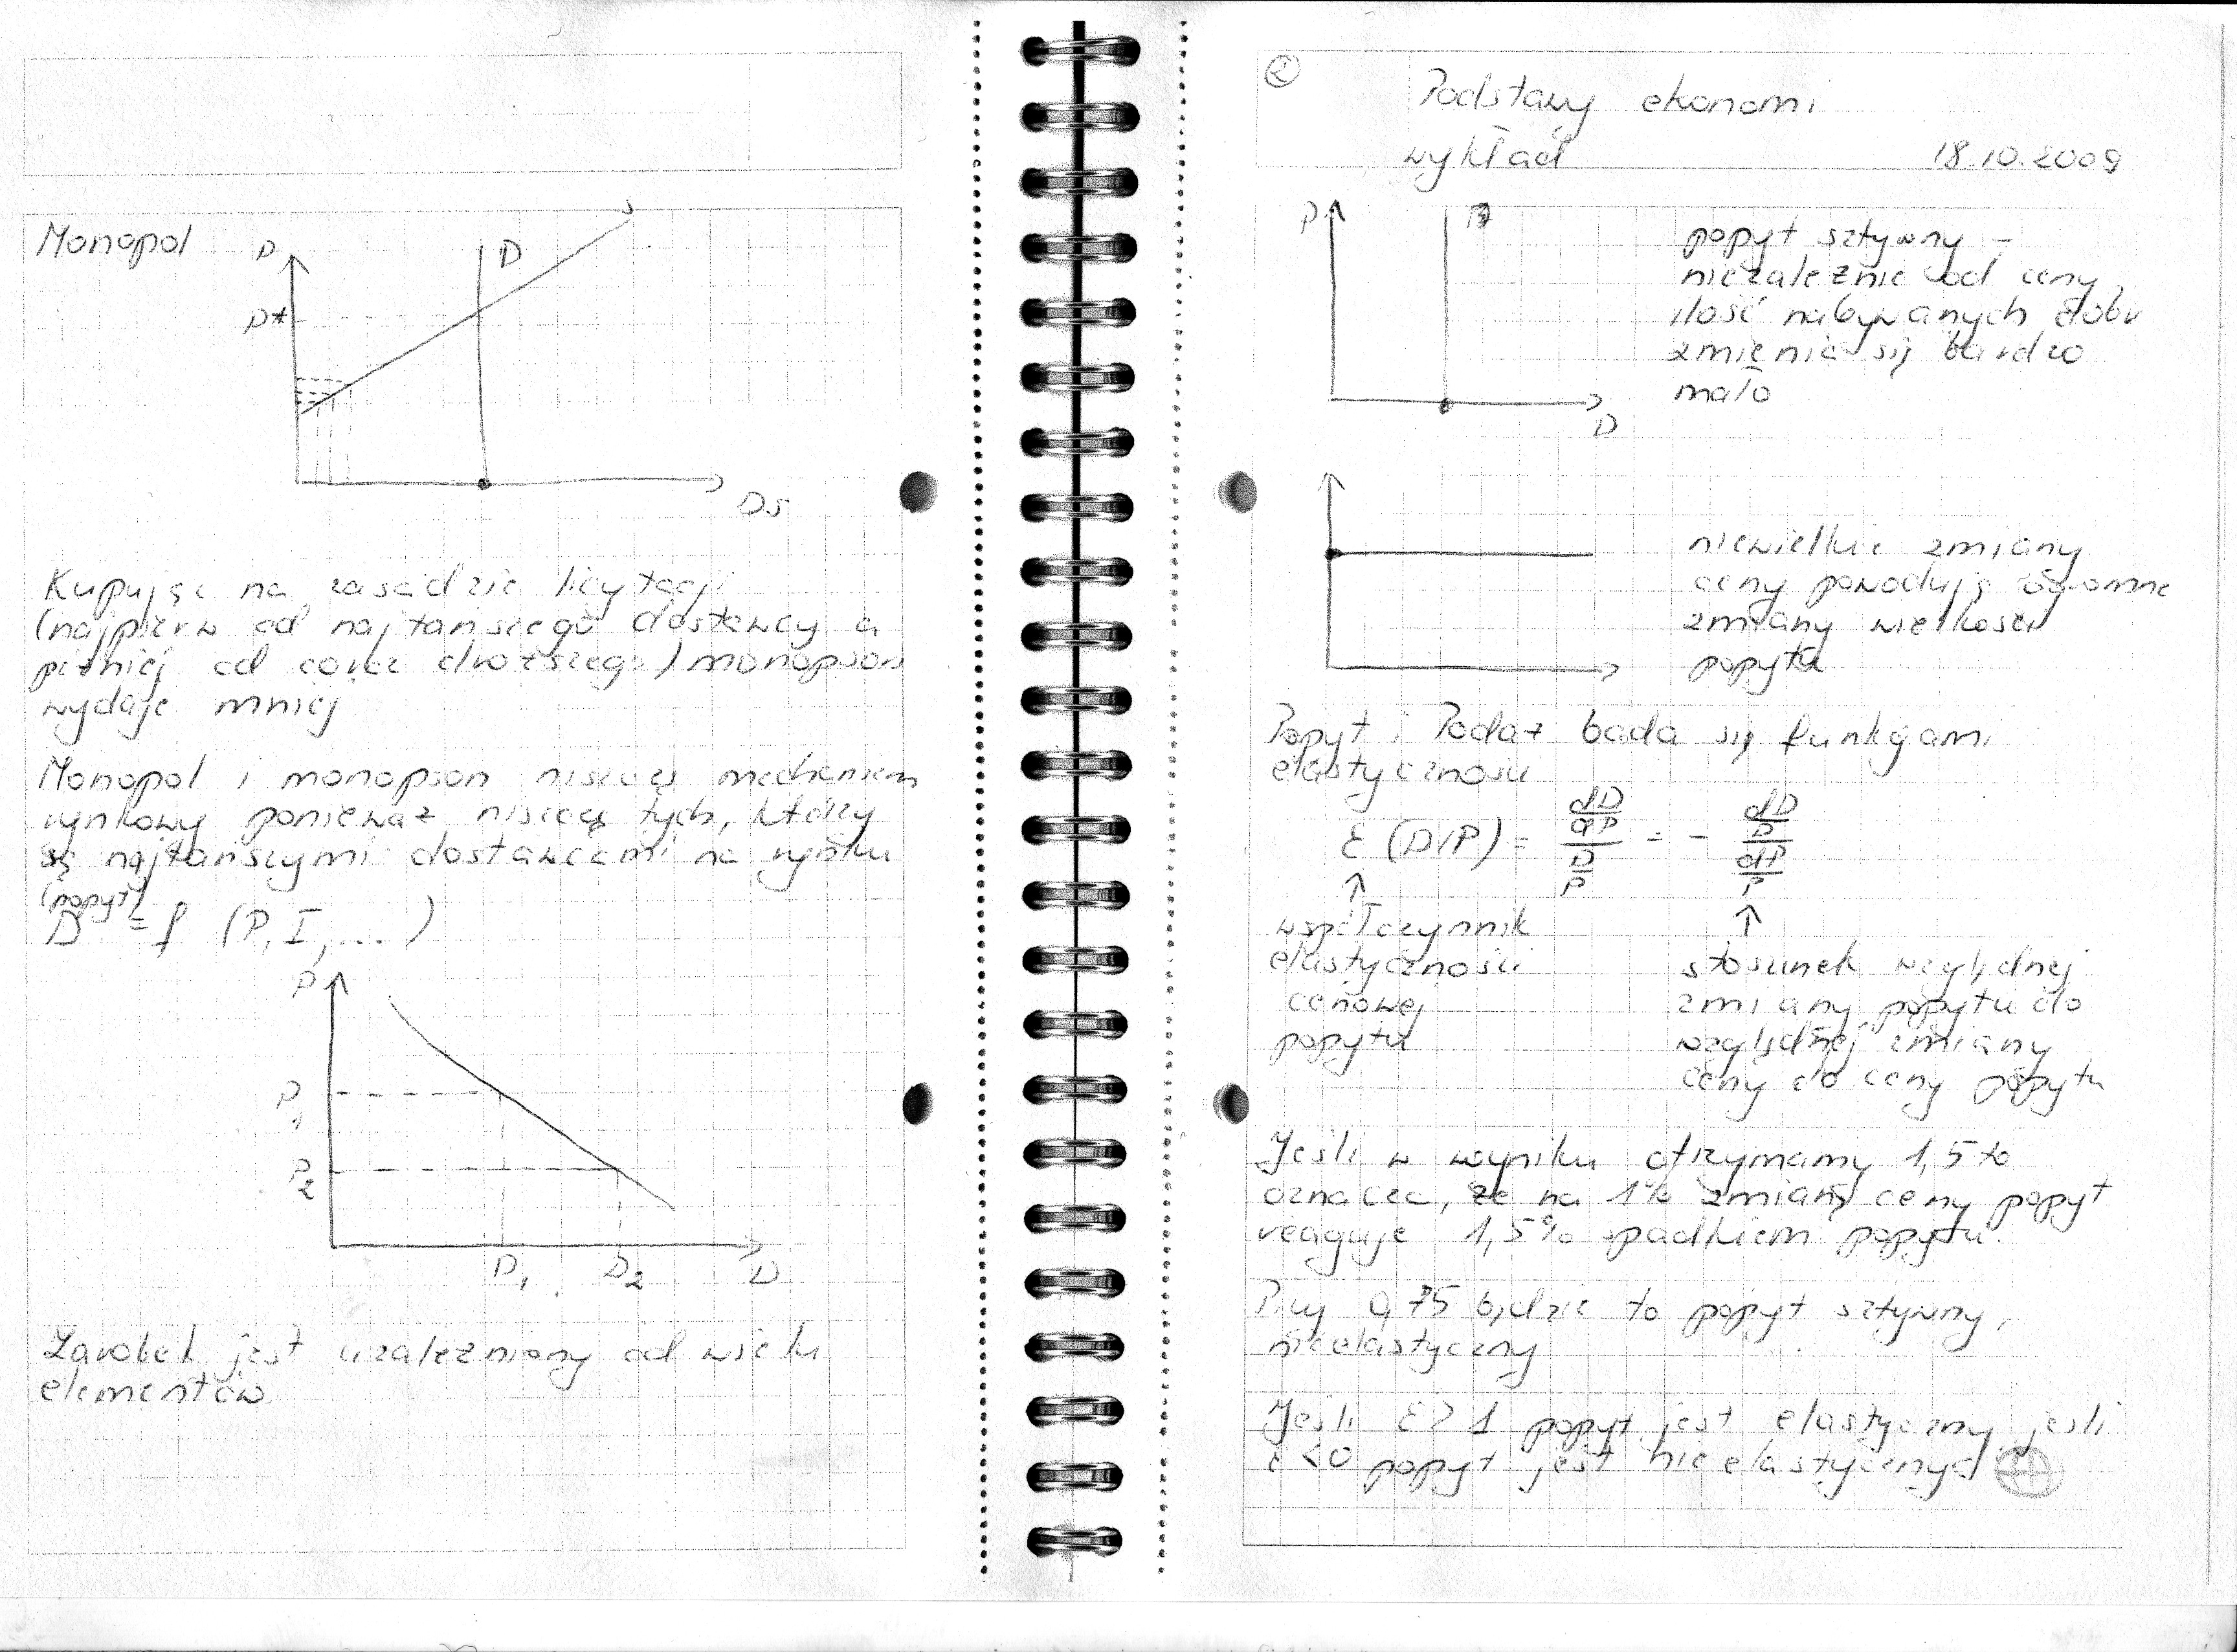 Monopol
P
P*
D
S
DS
Kupując na zasadzie licytacji
(najpierw od najtańszego dostawcy a
później od coraz droższego) monopson
wydaje mniej
Monopol i monopson niszczą mechanizm
rynkowy ponieważ niszczą tych, którzy
są najtańszymi dostawcami na rynku
(popyt)
D = f (P, I, ... )
P
P1
P2
D1 D2 D
Zarobek jest uzależniony od wielu
elementów
2
Podstawy ekonomi
wykład 18.10.2009
P
D
popyt sztywny -
niezależnie od ceny
ilość nabywanych dóbr
zmienia się bardzo
mało
niewielkie zmiany
ceny powodują ogromne
zmiany wielkości
popytu
Popyt i Podaż bada się funkcjami
elastyczności
ε (D/P) = dD/dP / D/P = - dD/D / dP/P
↑ ↑
współczynnik
elastyczności
cenowej
popytu
stosunek względnej
zmiany popytu do
względnej zmiany
ceny do ceny popytu
Jeśli w wyniku otrzymamy 1,5 to
oznacza, że na 1% zmianę ceny popyt
reaguje 1,5% spadkiem popytu.
Przy 0,75 będzie to popyt sztywny,
nieelastyczny
Jeśli ε > 1 popyt jest elastyczny jeśli
ε < 0 popyt jest nieelastyczny